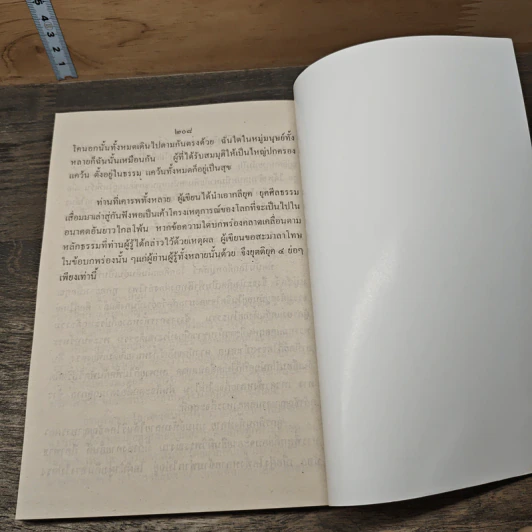 ๒๐๘
โคนอกนั้นทั้งหมดเดินไปตามกันตรงด้วย ฉันใดในหมู่มนุษย์ทั้ง
หลายก็ฉันนั้นเหมือนกัน ผู้ที่ได้รับสมมุติให้เป็นใหญ่ปกครอง
แคว้น ตั้งอยู่ในธรรม แคว้นทั้งหมดก็อยู่เป็นสุข
ท่านที่เคารพทั้งหลาย ผู้เขียนได้นำเอากลียุค ยุคศีลธรรม
เสื่อมมาเล่าสู่กันฟังพอเป็นเค้าโครงเหตุการณ์ของโลกที่จะเป็นไปใน
อนาคตอันยาวไกลโพ้น หากข้อความใดบกพร่องคลาดเคลื่อนตาม
หลักธรรมที่ท่านผู้รู้ได้กล่าวไว้ด้วยเหตุผล ผู้เขียนขอสะมาลาโทษ
ในข้อบกพร่องนั้น ๆแก่ผู้อ่านผู้รู้ทั้งหลายนั้นด้วย จึงยุตติยุค ๔ ย่อๆ
เพียงเท่านี้
5 4 3 2 1